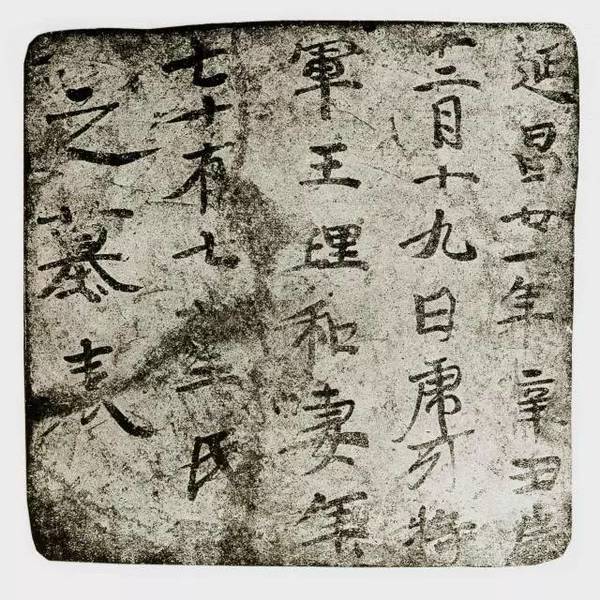 延昌廿一年辛丑歲
十二月十九日虎牙將
軍王理和妻年
七十有七董氏
之墓表